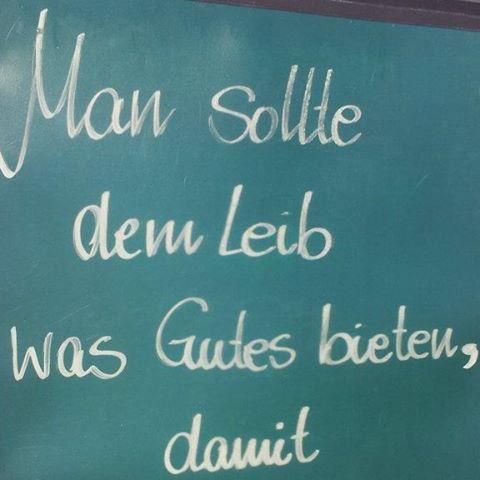 Man sollte
dem Leib
was Gutes bieten,
damit